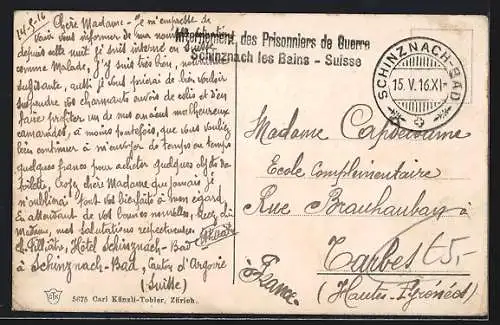 14-5-16
Chère Madame - Je m'empresse de
vous informer de ma nouvelle
depuis cette nuit je suis interné en Suisse
comme Malade, j'y suis très bien,
suffisante, aussi je vous prierai de bien vouloir
suspendre vos charmants envois de colis et d'en
faire profiter un de mes anciens malheureux
camarades, à moins toutefois, que vous vouliez
bien continuer à m'envoyer de temps en temps
quelques francs pour acheter quelques objets de
toilette, Croyez chère Madame que jamais je
n'oublierai tout vos bienfaits à mon égard
En attendant de vos bonnes nouvelles, Recevez
madame, mes salutations respectueuses
Hôtel Schinznach-Bad
à Schinznach-Bad, Canton d'Argovie
(Suisse)
5675 Carl Künzli-Tobler, Zürich.
Internement des Prisonniers de Guerre
Schinznach les Bains - Suisse
SCHINZNACH-BAD
15.V.16.XI-
Madame Capdessame
Ecole Complémentaire
Rue Brauhauban
à
Tarbes
65,-
(Hautes-Pyrénées)
France